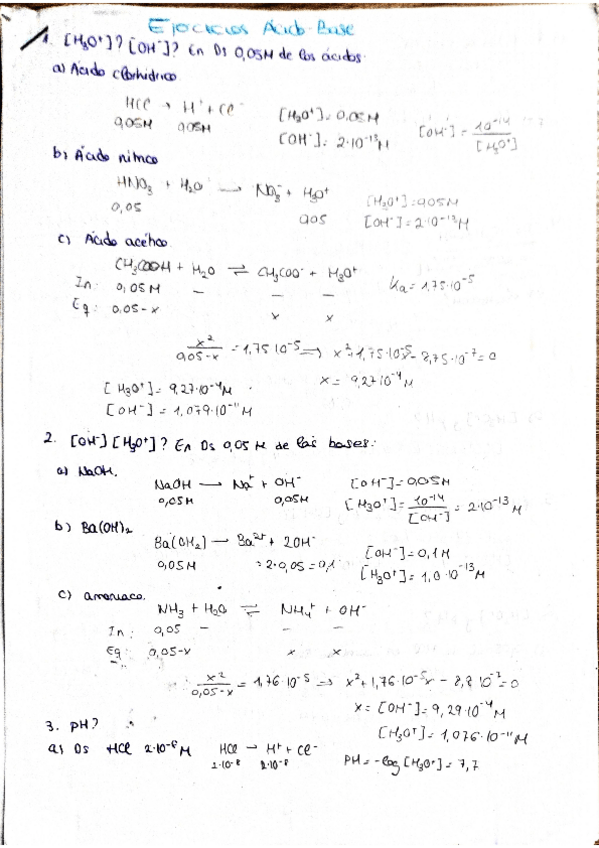 Ejercicios Ácido-Base
1. [H₃O⁺]? [OH⁻]? En Ds 0,05M de los ácidos.
a) Ácido clorhídrico
HCl → H⁺ + Cl⁻ [H₃O⁺] = 0,05M
0,05M 0,05M [OH⁻] = 2·10⁻¹³M [OH⁻] = 10⁻¹⁴/[H₃O⁺]
b) Ácido nítrico
HNO₃ + H₂O → NO₃⁻ + H₃O⁺ [H₃O⁺] = 0,05M
0,05 0,05 [OH⁻] = 2·10⁻¹³M
c) Ácido acético.
CH₃COOH + H₂O ⇌ CH₃COO⁻ + H₃O⁺ Ka = 1,75·10⁻⁵
In: 0,05M – – –
Eq: 0,05-x x x
x²/0,05-x = 1,75·10⁻⁵ ⇒ x²+1,75·10⁻⁵x - 8,75·10⁻⁷ = 0
[H₃O⁺] = 9,27·10⁻⁴M x = 9,27·10⁻⁴M
[OH⁻] = 1,079·10⁻¹¹M
2. [OH⁻] [H₃O⁺]? En Ds 0,05M de las bases:
a) NaOH.
NaOH → Na⁺ + OH⁻ [OH⁻] = 0,05M
0,05M 0,05M [H₃O⁺] = 10⁻¹⁴/[OH⁻] = 2·10⁻¹³M
b) Ba(OH)₂
Ba(OH₂) → Ba²⁺ + 2OH⁻ [OH⁻] = 0,1M
0,05M = 2·0,05 = 0,1 [H₃O⁺] = 1,0·10⁻¹³M
c) amoniaco.
NH₃ + H₂O ⇌ NH₄⁺ + OH⁻
In: 0,05 – – –
Eq: 0,05-x x x
x²/0,05-x = 1,76·10⁻⁵ ⇒ x²+1,76·10⁻⁵x - 8,8·10⁻⁷ = 0
x = [OH⁻] = 9,29·10⁻⁴M
[H₃O⁺] = 1,076·10⁻¹¹M
3. pH?
a) Ds HCl 2·10⁻⁸M HCl → H⁺ + Cl⁻ PH = -log [H₃O⁺] = 7,7
2·10⁻⁸ 2·10⁻⁸